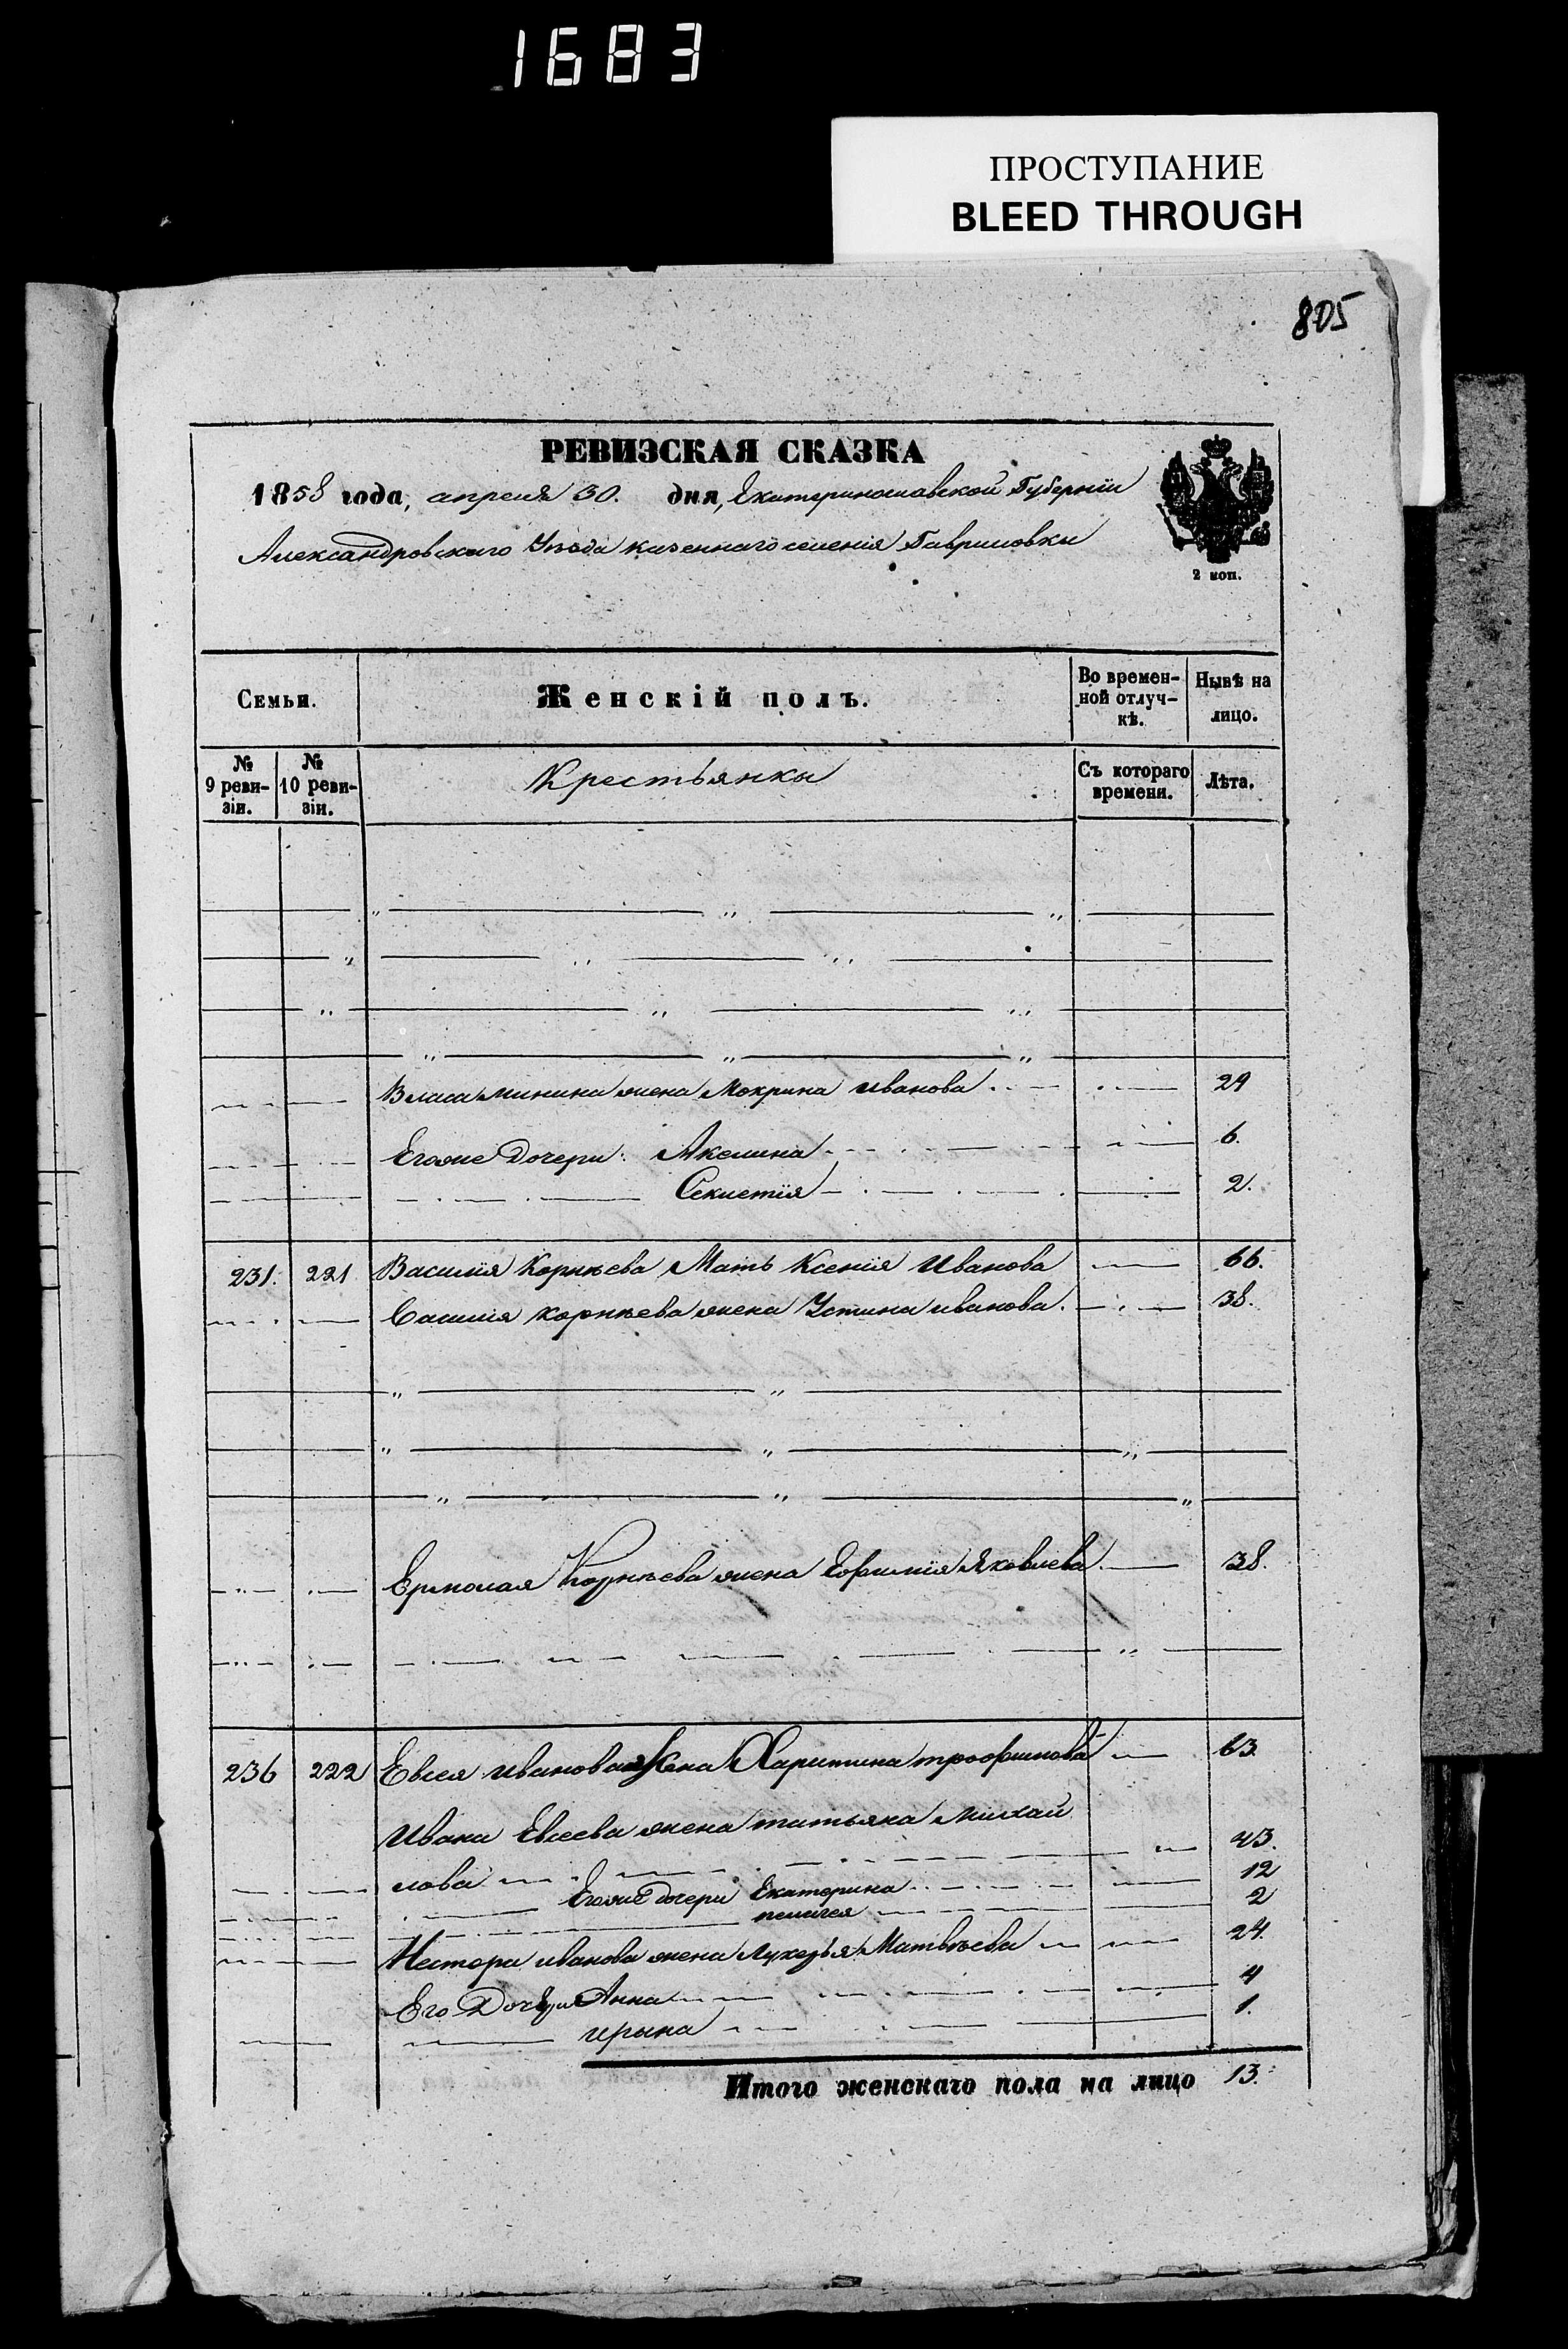 1683
ПРОСТУПАНИЕ
BLEED THROUGH
805
РЕВИЗСКАЯ СКАЗКА
1858 года, апреля 30. дня, Екатеринославской Губерніи
Александровскаго Уѣзда казеннаго селенія Гавриловки
2 коп.
Семьи. Женскій полъ. Во времен-ной отлуч-кѣ. Нынѣ на лицо.
№ 9 реви-зіи. № 10 реви-зіи. Крестьянки Съ котораго времени. Лѣта.
Власа Минина жена Мокрина Иванова 29
Егоже Дочери: Акелина 6.
2.
231. 221 Василія Корнѣева Мать Ксенія Иванова 66.
Василія Корнѣева жена Устина иванова. 38.
Ермолая Корнѣева жена Ефимія Яковлева 38.
236 222 Евсея иванова жена Харитина трофимова 63.
Ивана Евсеева жена татьяна михай
лова 43.
Егоже дочери Екатерина 12
пелагея 2
Нестора иванова жена Лукерья Матвѣева 24.
Его Дочери Анна 4
ирына 1.
Итого женскаго пола на лицо 13.